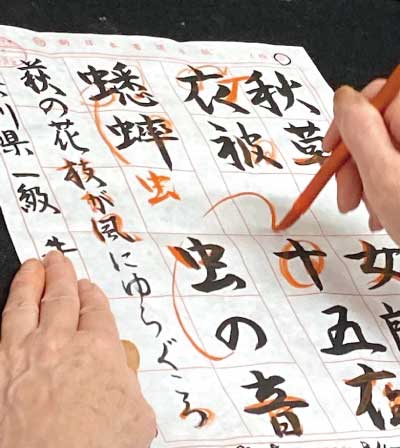 秋
女郎
衣被
十五夜
蟋蟀
虫
虫の音
萩の花枝が風にゆらぐころ
川県一級